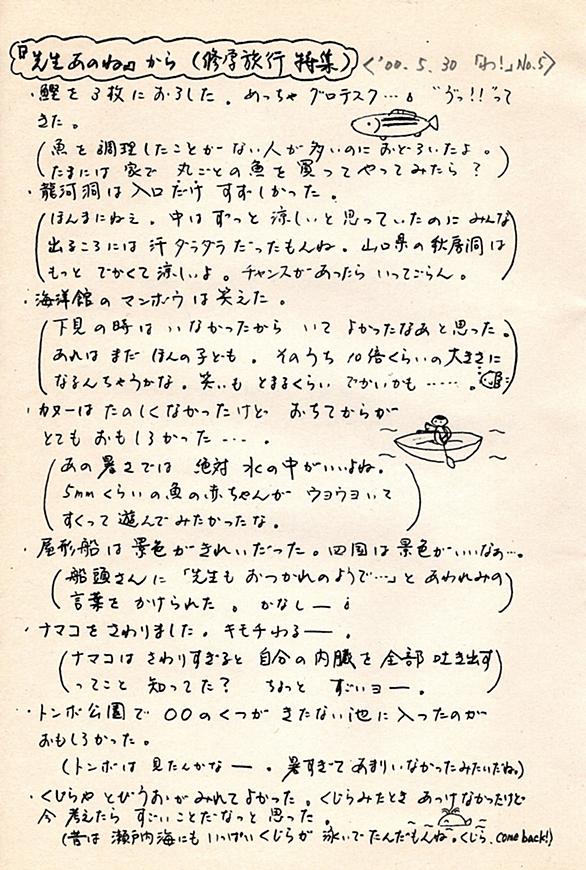 『先生あのね』から (修学旅行 特集) <'00.5.30 「わ!」No.5>
・鰹を3枚におろした。めっちゃグロテスク…。“うっ!!”って
きた。
(魚を調理したことがない人が多いのにおどろいたよ。
たまには家で 丸ごとの魚を買ってやってみたら?)
・龍河洞は入口だけ すずしかった。
(ほんまにねぇ。中はずっと涼しいと思っていたのにみんな
出るころには汗ダラダラだったもんね。山口県の秋芳洞は
もっと でかくて涼しいよ。チャンスがあったら いってごらん。)
・海洋館の マンボウは笑えた。
(下見の時は いなかったから いて よかったなあと思った。
あれは まだ ほんの子ども。そのうち 10倍くらいの大きさに
なるんちゃうかな。笑いも とまるくらい でかいかも……。)
・カヌーは たのしくなかったけど おちてからが
とても おもしろかった…。
(あの暑さでは 絶対 水の中がいいよね。
5mmくらいの魚の赤ちゃんが ウヨウヨいて
すくって遊んでみたかったな。)
・屋形船は景色がきれいだった。四国は景色がいいなぁ…。
(船頭さんに「先生も おつかれのようで…」と あわれみの
言葉を かけられた。かなしー。)
・ナマコをさわりました。キモチわるー。
(ナマコは さわりすぎると 自分の内臓を全部 吐き出す
ってこと 知ってた? ちょっと すごいヨー。)
・トンボ公園で ○○のくつが きたない池に入ったのが
おもしろかった。
(トンボは 見たんかなー。暑すぎて あまりいなかったみたいだね。)
・くじらや とびうおがみれてよかった。くじらみたとき あっけなかったけど
今 考えたら すごいことだなっと 思った。
(昔は 瀬戸内海にも いっぱいくじらが 泳いでたんだもんね。くじら、come back!)